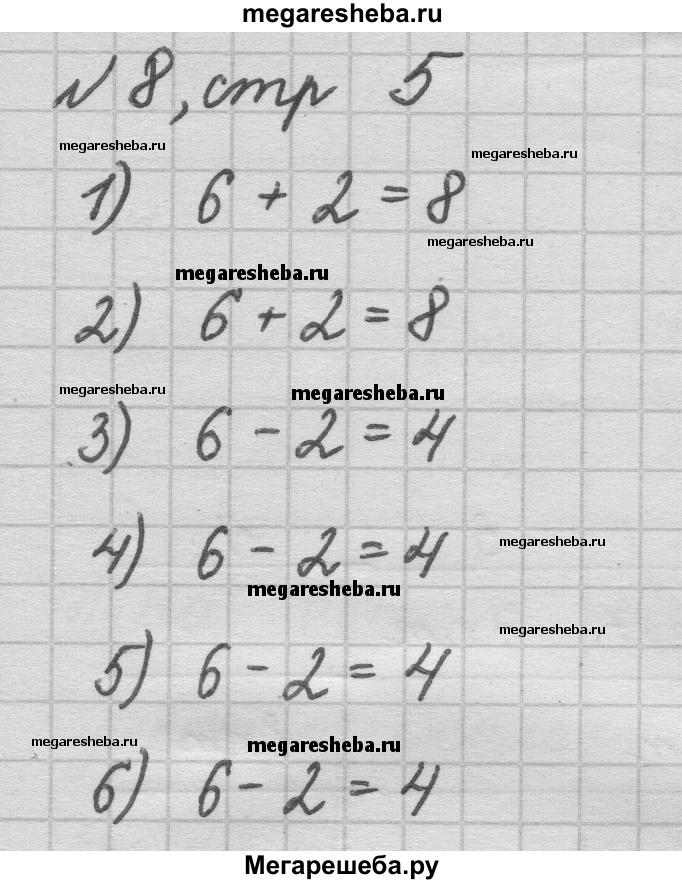 megaresheba.ru
№ 8, стр 5
megaresheba.ru
megaresheba.ru
1) 6 + 2 = 8
megaresheba.ru
megaresheba.ru
2) 6 + 2 = 8
megaresheba.ru
megaresheba.ru
3) 6 - 2 = 4
megaresheba.ru
4) 6 - 2 = 4
megaresheba.ru
megaresheba.ru
5) 6 - 2 = 4
megaresheba.ru
megaresheba.ru
6) 6 - 2 = 4
Мегарешеба.ру